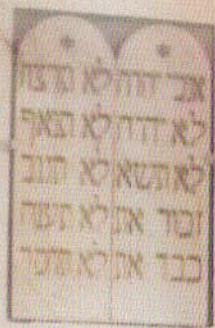 אנכי יהוה לא תרצח
לא יהיה לא תנאף
לא תשא לא תגנב
זכור את לא תענה
כבד את לא תחמד